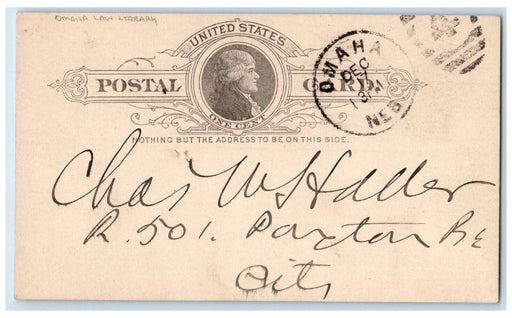 OMAHA LAW LIBRARY
UNITED STATES
POSTAL CARD.
ONE CENT
NOTHING BUT THE ADDRESS TO BE ON THIS SIDE.
OMAHA
DEC
NEB
Chas W Haller
R. 501. Paxton
City